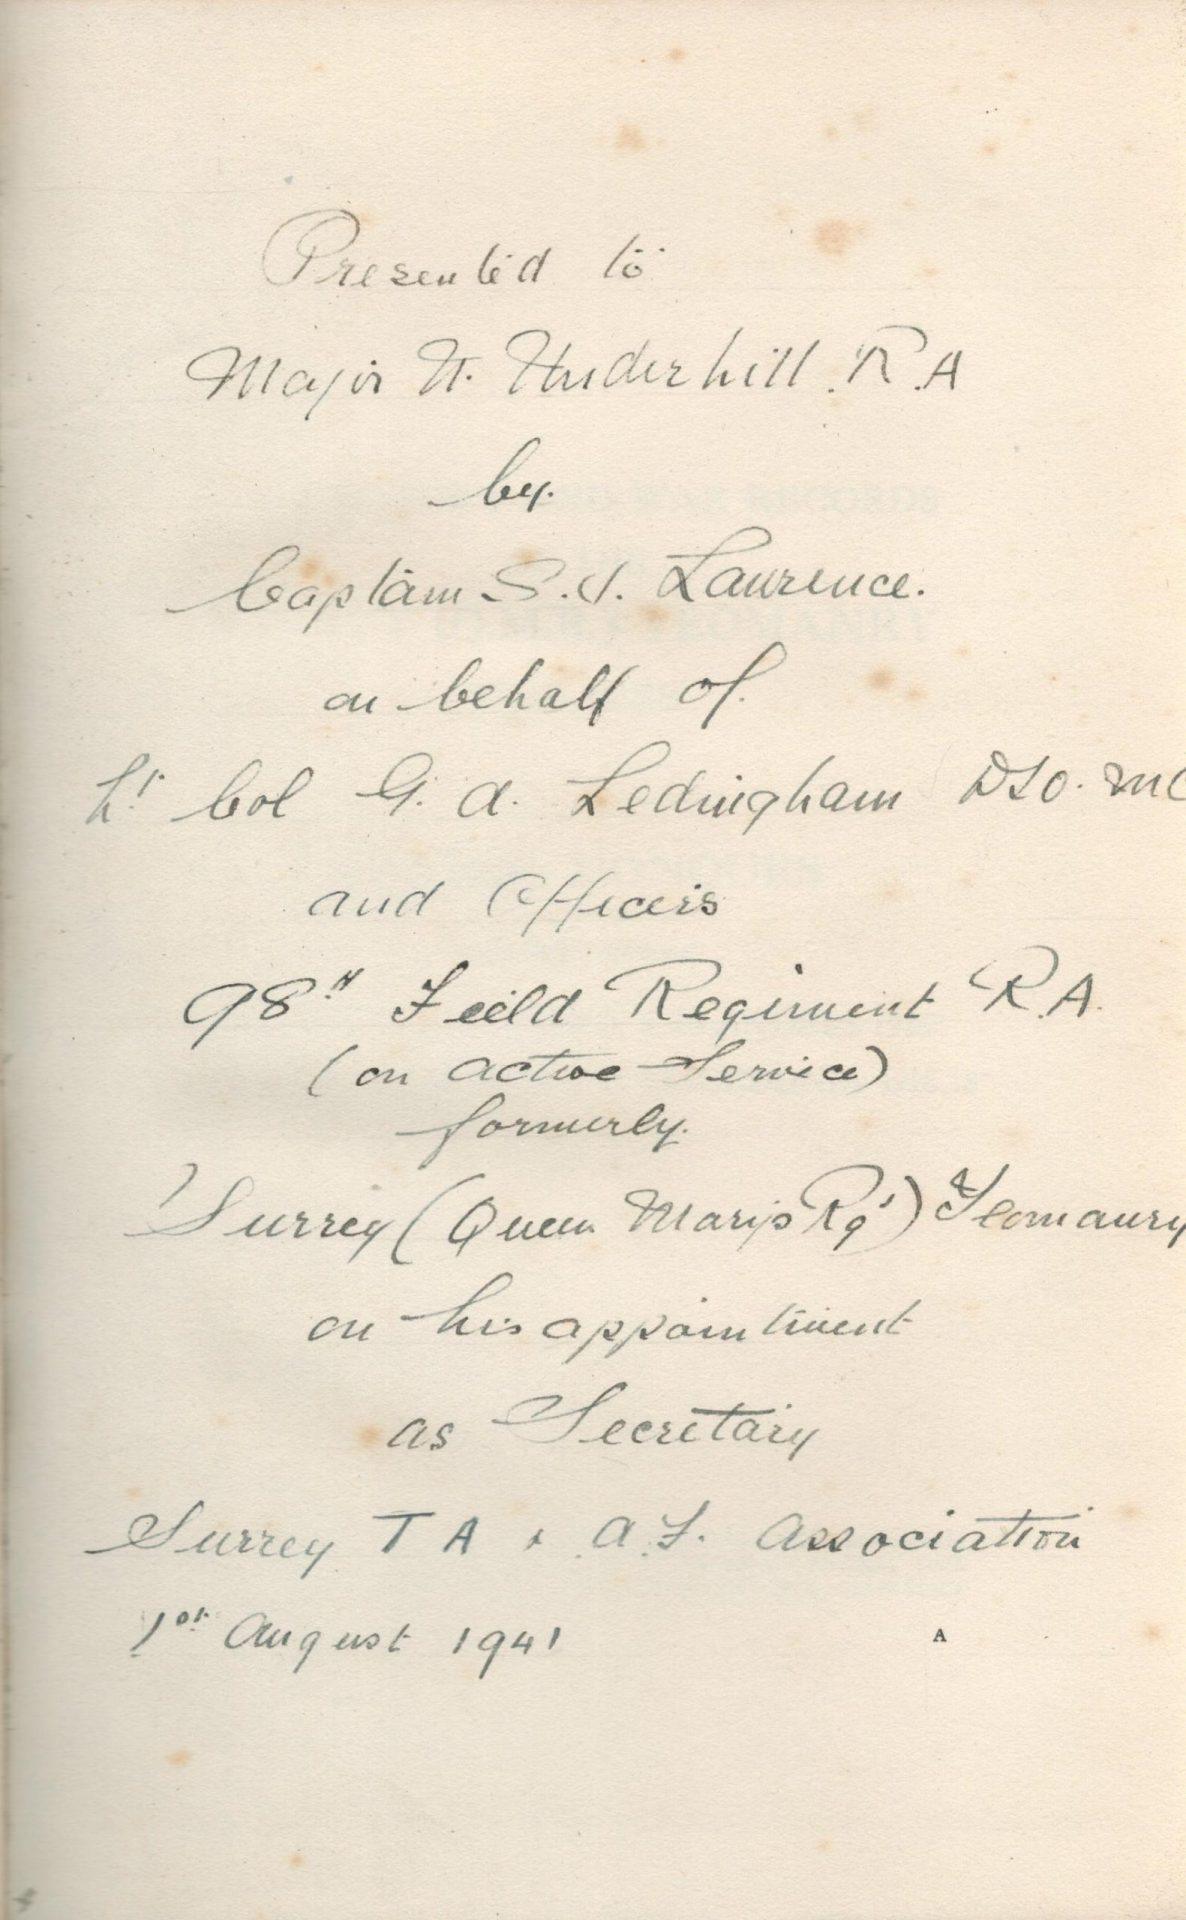 Presented to
Major W. Underhill. R.A
by.
Captain S.J. Lawrence.
on behalf of.
Lt Col G. A. Ledingham DSO. MC
and Officers
98th Field Regiment R.A.
(on Active Service)
formerly.
Surrey (Queen Mary's Rgt) Yeomanry
on his appointment
as Secretary
Surrey T A & A.F. Association
1st August 1941
A